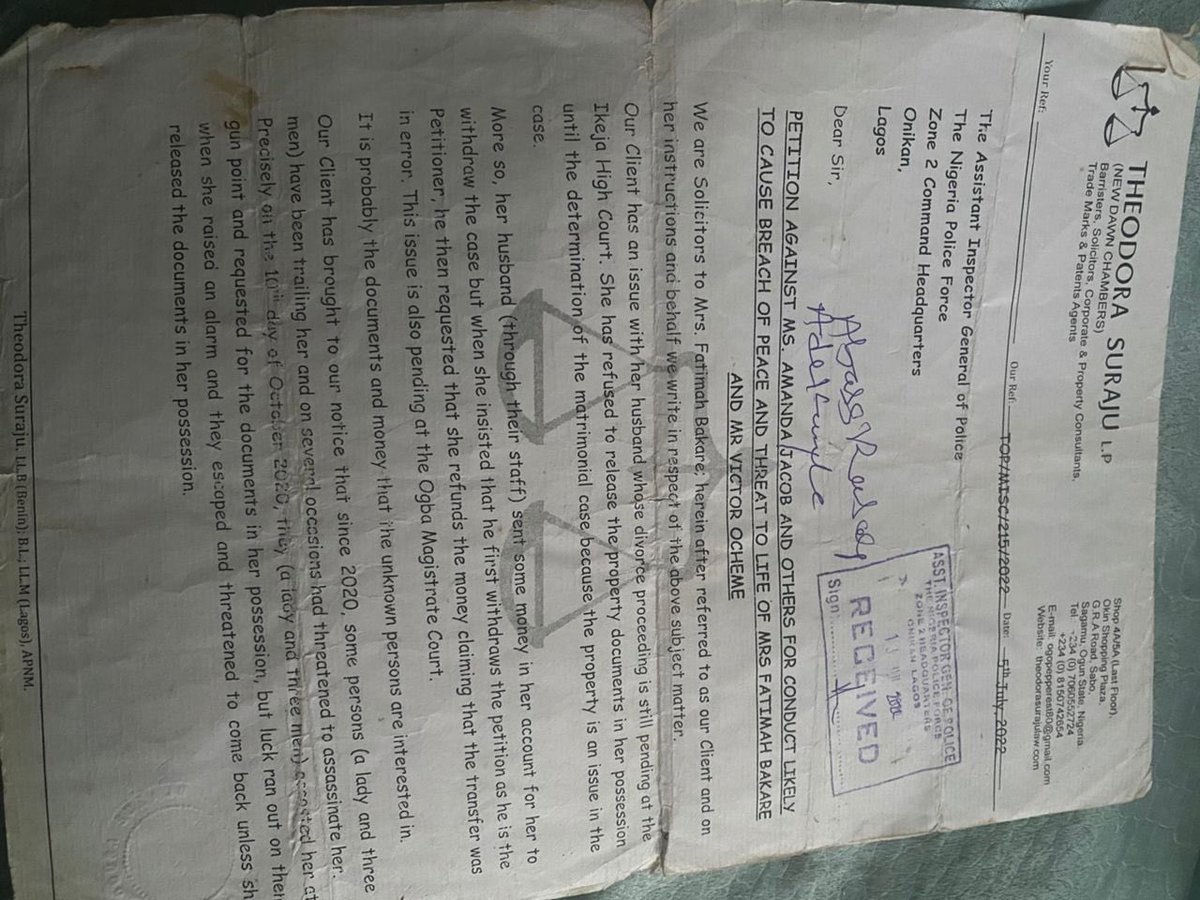 THEODORA SURAJU L.P
(NEW DAWN CHAMBERS)
Barristers, Solicitors, Corporate & Property Consultants,
Trade Marks & Patents Agents
Shop 4A/5A (Last Floor),
Okin Shopping Plaza,
G.R.A Road, Sabo,
Sagamu, Ogun State, Nigeria.
Tel: +234 (0) 7060552724
+234 (0) 8150742654
E-mail: ogopepperest80@gmail.com
Website: theodorasurajulaw.com
Your Ref: Our Ref: TOP/MISC/215/2022 Date: 5th July, 2022
The Assistant Inspector General of Police
The Nigeria Police Force
Zone 2 Command Headquarters
Onikan,
Lagos
ASST. INSPECTOR GEN. OF POLICE
THE NIGERIA POLICE FORCE
ZONE 2 HEADQUARTERS
ONIKAN LAGOS
RECEIVED
Sign
Dear Sir,
Abass
PETITION AGAINST MS. AMANDA JACOB AND OTHERS FOR CONDUCT LIKELY
TO CAUSE BREACH OF PEACE AND THREAT TO LIFE OF MRS FATIMAH BAKARE
AND MR VICTOR OCHEME
We are Solicitors to Mrs. Fatimah Bakare; herein after referred to as our Client and on
her instructions and behalf we write in respect of the above subject matter.
Our Client has an issue with her husband whose divorce proceeding is still pending at the
Ikeja High Court. She has refused to release the property documents in her possession
until the determination of the matrimonial case because the property is an issue in the
case.
More so, her husband (through their staff) sent some money in her account for her to
withdraw the case but when she insisted that he first withdraws the petition as he is the
Petitioner, he then requested that she refunds the money claiming that the transfer was
in error. This issue is also pending at the Ogba Magistrate Court.
It is probably the documents and money that the unknown persons are interested in.
Our Client has brought to our notice that since 2020, some persons (a lady and three
men) have been trailing her and on several occasions had threatened to assassinate her.
Precisely on the 10th day of October 2020, they (a lady and three men) accosted her at
gun point and requested for the documents in her possession, but luck ran out on them
when she raised an alarm and they escaped and threatened to come back unless sh
released the documents in her possession.
Theodora Suraju, LL.B (Benin); B.L., LL.M (Lagos), APNM.